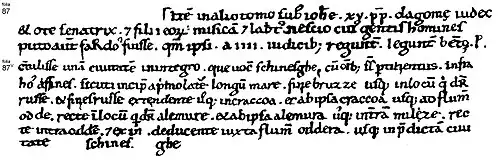 folio
87
Itē in alio tomo sub iohe . xv . pp̄ . dagome iudex
& ote senatrix . & filii eorꝫ . misica & lābt̄ . nescio cuī gentis homines
puto autē sardos fuisse . qm̄ ipsi . a IIII . iudicib; reguntˀ . leguntˀ beto . P.
folio
87ᵛ
ētulisse unā ciuitatē in integro . que uoc̄ schinesghe, cū oīb; suis ptinentiis . infra
hos affines . sicuti incipit a pmo latere longū mare . fine bruzze usq; in locū q̄ dr̄
russe . & fines russe extendente usq; in craccoa . & ab ipsa craccoa . usq; ad flum̄
odde, recte in locū q̄ dr̄ alemure . & ab ipsa alemura usq; in t̄rā milzę . recte
intra oddere . & exin . deducente iuxta flum̄ oddera . usq; in p̄dictā ciui
tate schines ghe